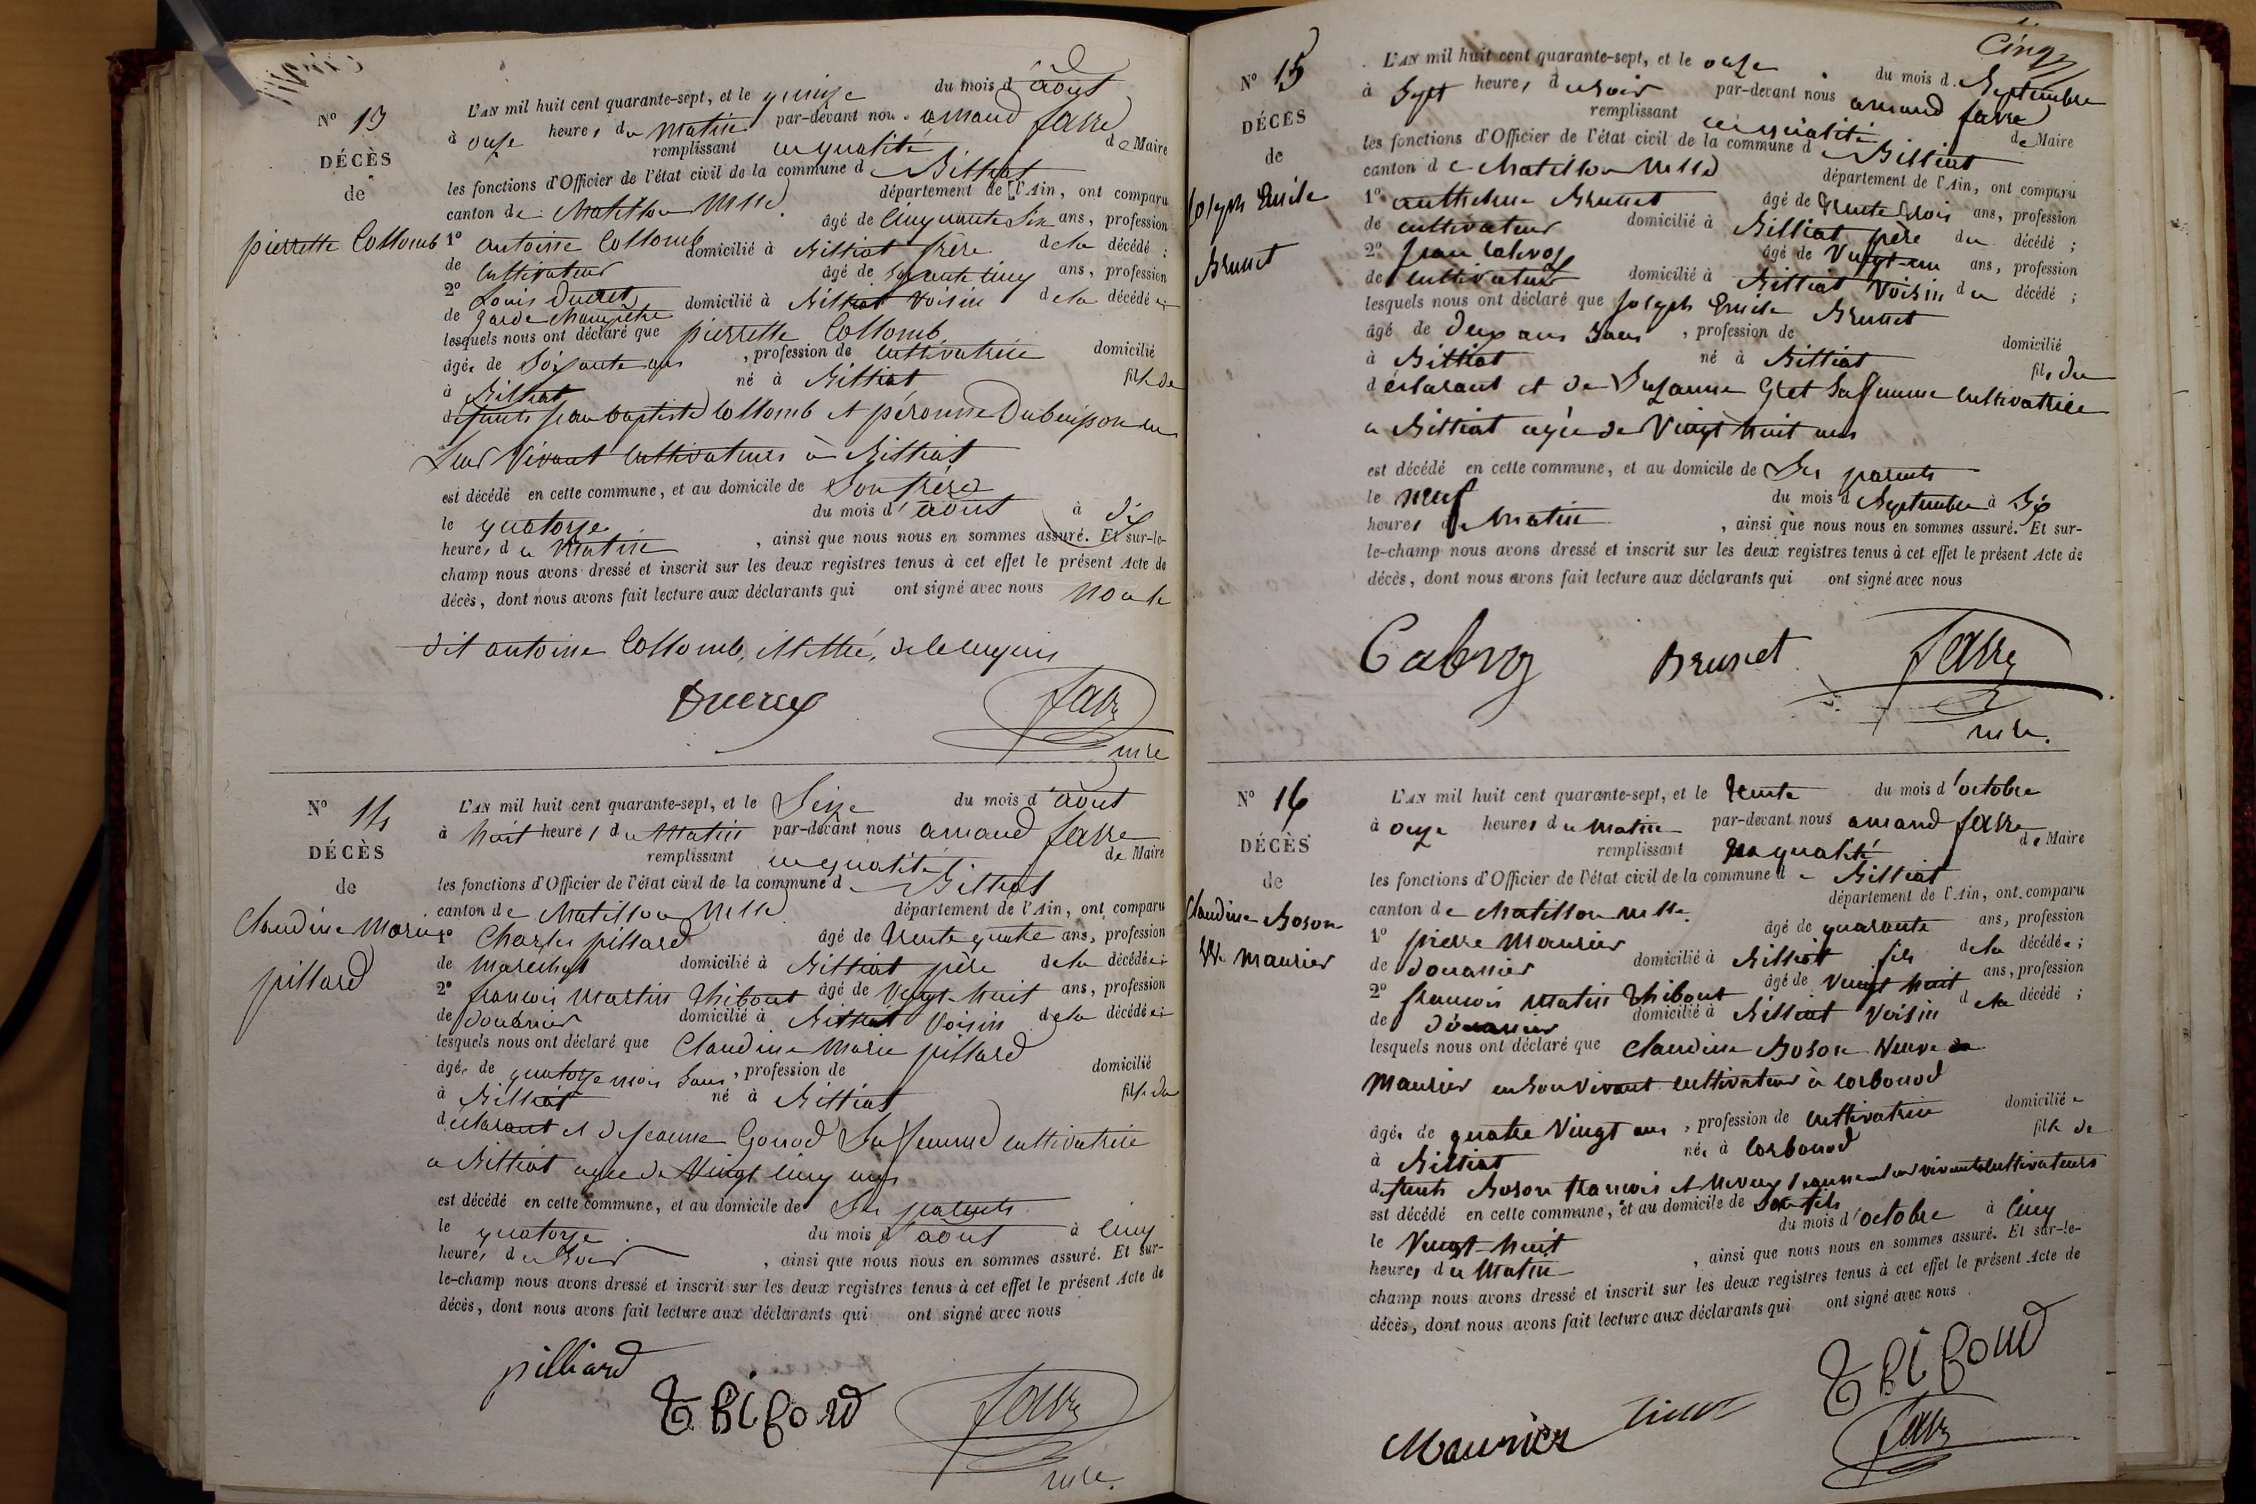 N° 13
DÉCÈS
de
pierrette Collomb
L'AN mil huit cent quarante-sept, et le quinze du mois d'août
à onze heures du matin par-devant nous amand favre
remplissant en qualité de Maire
les fonctions d'Officier de l'état civil de la commune de Billiat
canton de Chatillon département de l'Ain, ont comparu
1° antoine Collomb âgé de Cinquante Six ans, profession
de Cultivateur domicilié à Billiat frère de la décédé ;
2° Louis Ducret âgé de Soixante cinq ans, profession
de garde champêtre domicilié à Billiat Voisin de la décédée
lesquels nous ont déclaré que pierrette Collomb
âgée de Soixante ans, profession de cultivatrice domicilié
à Billiat né à Billiat fille de
défunts jean baptiste Collomb et péronne Dubuisson en
Leur Vivant Cultivateurs à Billiat
est décédé en cette commune, et au domicile de Son frère
le quatorze du mois d'août à dix
heures du matin, ainsi que nous nous en sommes assuré. Et sur-le-
champ nous avons dressé et inscrit sur les deux registres tenus à cet effet le présent Acte de
décès, dont nous avons fait lecture aux déclarants qui ont signé avec nous non le
dit antoine Collomb, illettré, de le enquis
Favre
mre
N° 14
DÉCÈS
de
Claudine Marie
pillard
L'AN mil huit cent quarante-sept, et le Seize du mois d'août
à huit heures du matin par-devant nous amand favre
remplissant en qualité de Maire
les fonctions d'Officier de l'état civil de la commune de Billiat
canton de Chatillon département de l'Ain, ont comparu
1° Charles pillard âgé de trente quatre ans, profession
de Maréchal domicilié à Billiat père de la décédée
2° françois Martin Thibout âgé de Vingt-huit ans, profession
de douanier domicilié à Billiat Voisin de la décédée
lesquels nous ont déclaré que Claudine Marie pillard
âgée de quatorze mois Sans, profession de domicilié
à Billiat né à Billiat fille du
déclarant et de jeanne Gonod Sa femme cultivatrice
a Billiat agée de Vingt cinq ans
est décédé en cette commune, et au domicile de Ses parents
le quatorze du mois d'août à cinq
heures du Soir, ainsi que nous nous en sommes assuré. Et sur-
le-champ nous avons dressé et inscrit sur les deux registres tenus à cet effet le présent Acte de
décès, dont nous avons fait lecture aux déclarants qui ont signé avec nous
pilliard
Thiboud
Favre
mre.
Cinq
N° 15
DÉCÈS
de
Joseph Emile
Brunet
L'AN mil huit cent quarante-sept, et le onze du mois de Septembre
à Sept heures du soir par-devant nous amand favre
remplissant en qualité de Maire
les fonctions d'Officier de l'état civil de la commune de Billiat
canton de Chatillon département de l'Ain, ont comparu
1° anthelme Brunet âgé de trente trois ans, profession
de cultivateur domicilié à Billiat père du décédé ;
2° jean Cabroz âgé de Vingt-un ans, profession
de Cultivateur domicilié à Billiat Voisin du décédé ;
lesquels nous ont déclaré que Joseph Emile Brunet
âgé de deux ans Sans, profession de domicilié
à Billiat né à Billiat fils du
déclarant et de Suzanne Gret Sa femme cultivatrice
a Billiat agée de Vingt huit ans
est décédé en cette commune, et au domicile de Ses parents
le neuf du mois de Septembre à Six
heures du Matin, ainsi que nous nous en sommes assuré. Et sur-
le-champ nous avons dressé et inscrit sur les deux registres tenus à cet effet le présent Acte de
décès, dont nous avons fait lecture aux déclarants qui ont signé avec nous
Cabroz Brunet Favre
mre.
N° 16
DÉCÈS
de
Claudine Boson
Ve Maurier
L'AN mil huit cent quarante-sept, et le trente du mois d'octobre
à onze heures du matin par-devant nous amand favre
remplissant en qualité de Maire
les fonctions d'Officier de l'état civil de la commune de Billiat
canton de Chatillon département de l'Ain, ont comparu
1° pierre Maurier âgé de quarante ans, profession
de douanier domicilié à Billiat fils de la décédée ;
2° françois Matin Thibout âgé de Vingt huit ans, profession
de douanier domicilié à Billiat Voisin de la décédé ;
lesquels nous ont déclaré que Claudine Boson Veuve de
Maurier en Son vivant cultivateur à Corbonod
âgée de quatre Vingt ans, profession de cultivatrice domiciliée
à Billiat née à Corbonod fille de
défunts Boson francois et jeanne leur vivant Cultivateurs
est décédé en cette commune, et au domicile de Son fils
le Vingt-huit du mois d'octobre à cinq
heures du Matin, ainsi que nous nous en sommes assuré. Et sur-le-
champ nous avons dressé et inscrit sur les deux registres tenus à cet effet le présent Acte de
décès, dont nous avons fait lecture aux déclarants qui ont signé avec nous
Thiboud
Maurier
Favre